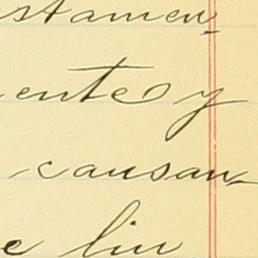 stamen-
ente y
causan-
e lin